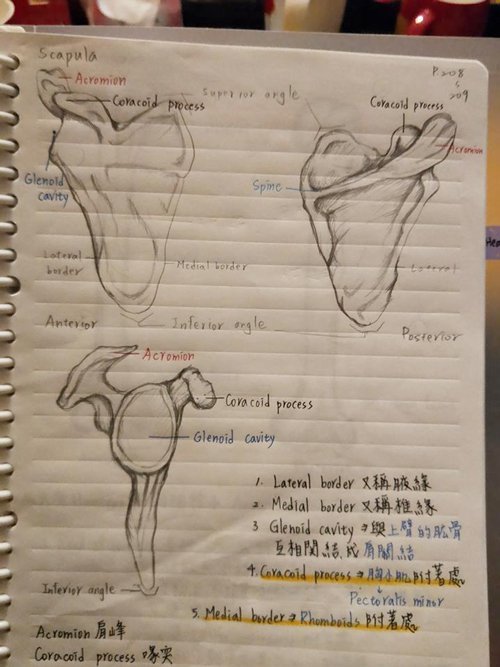 Scapula
P.208
209
Acromion
Coracoid process
Superior angle
Coracoid process
Acromion
Glenoid cavity
Spine
Lateral border
Medial border
Lateral
Anterior
Inferior angle
Posterior
Acromion
Coracoid process
Glenoid cavity
1. Lateral border 又稱腋緣
2. Medial border 又稱椎緣
3 Glenoid cavity → 與上臂的肱骨
互相關結成肩關結
4. Coracoid process → 胸小肌附著處
Pectoralis minor
Inferior angle
5. Medial border → Rhomboids 附著處
Acromion 肩峰
Coracoid process 喙突